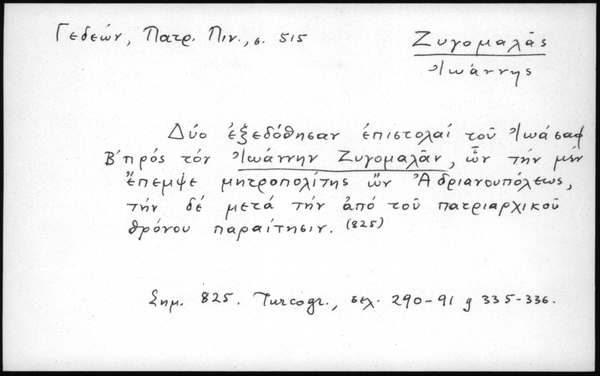 Γεδεών, Πατρ. Πιν., σ. 515
Ζυγομαλᾶς
Ἰωάννης
Δύο ἐξεδόθησαν ἐπιστολαί τοῦ Ἰωάσαφ
Β΄ πρός τόν Ἰωάννην Ζυγομαλᾶν, ὧν τήν μέν
ἔπεμψε μητροπολίτης ὤν Ἀδριανουπόλεως,
τήν δέ μετά τήν ἀπό τοῦ πατριαρχικοῦ
θρόνου παραίτησιν. (825)
Σημ. 825. Turcogr., σελ. 290-91 9 335-336.